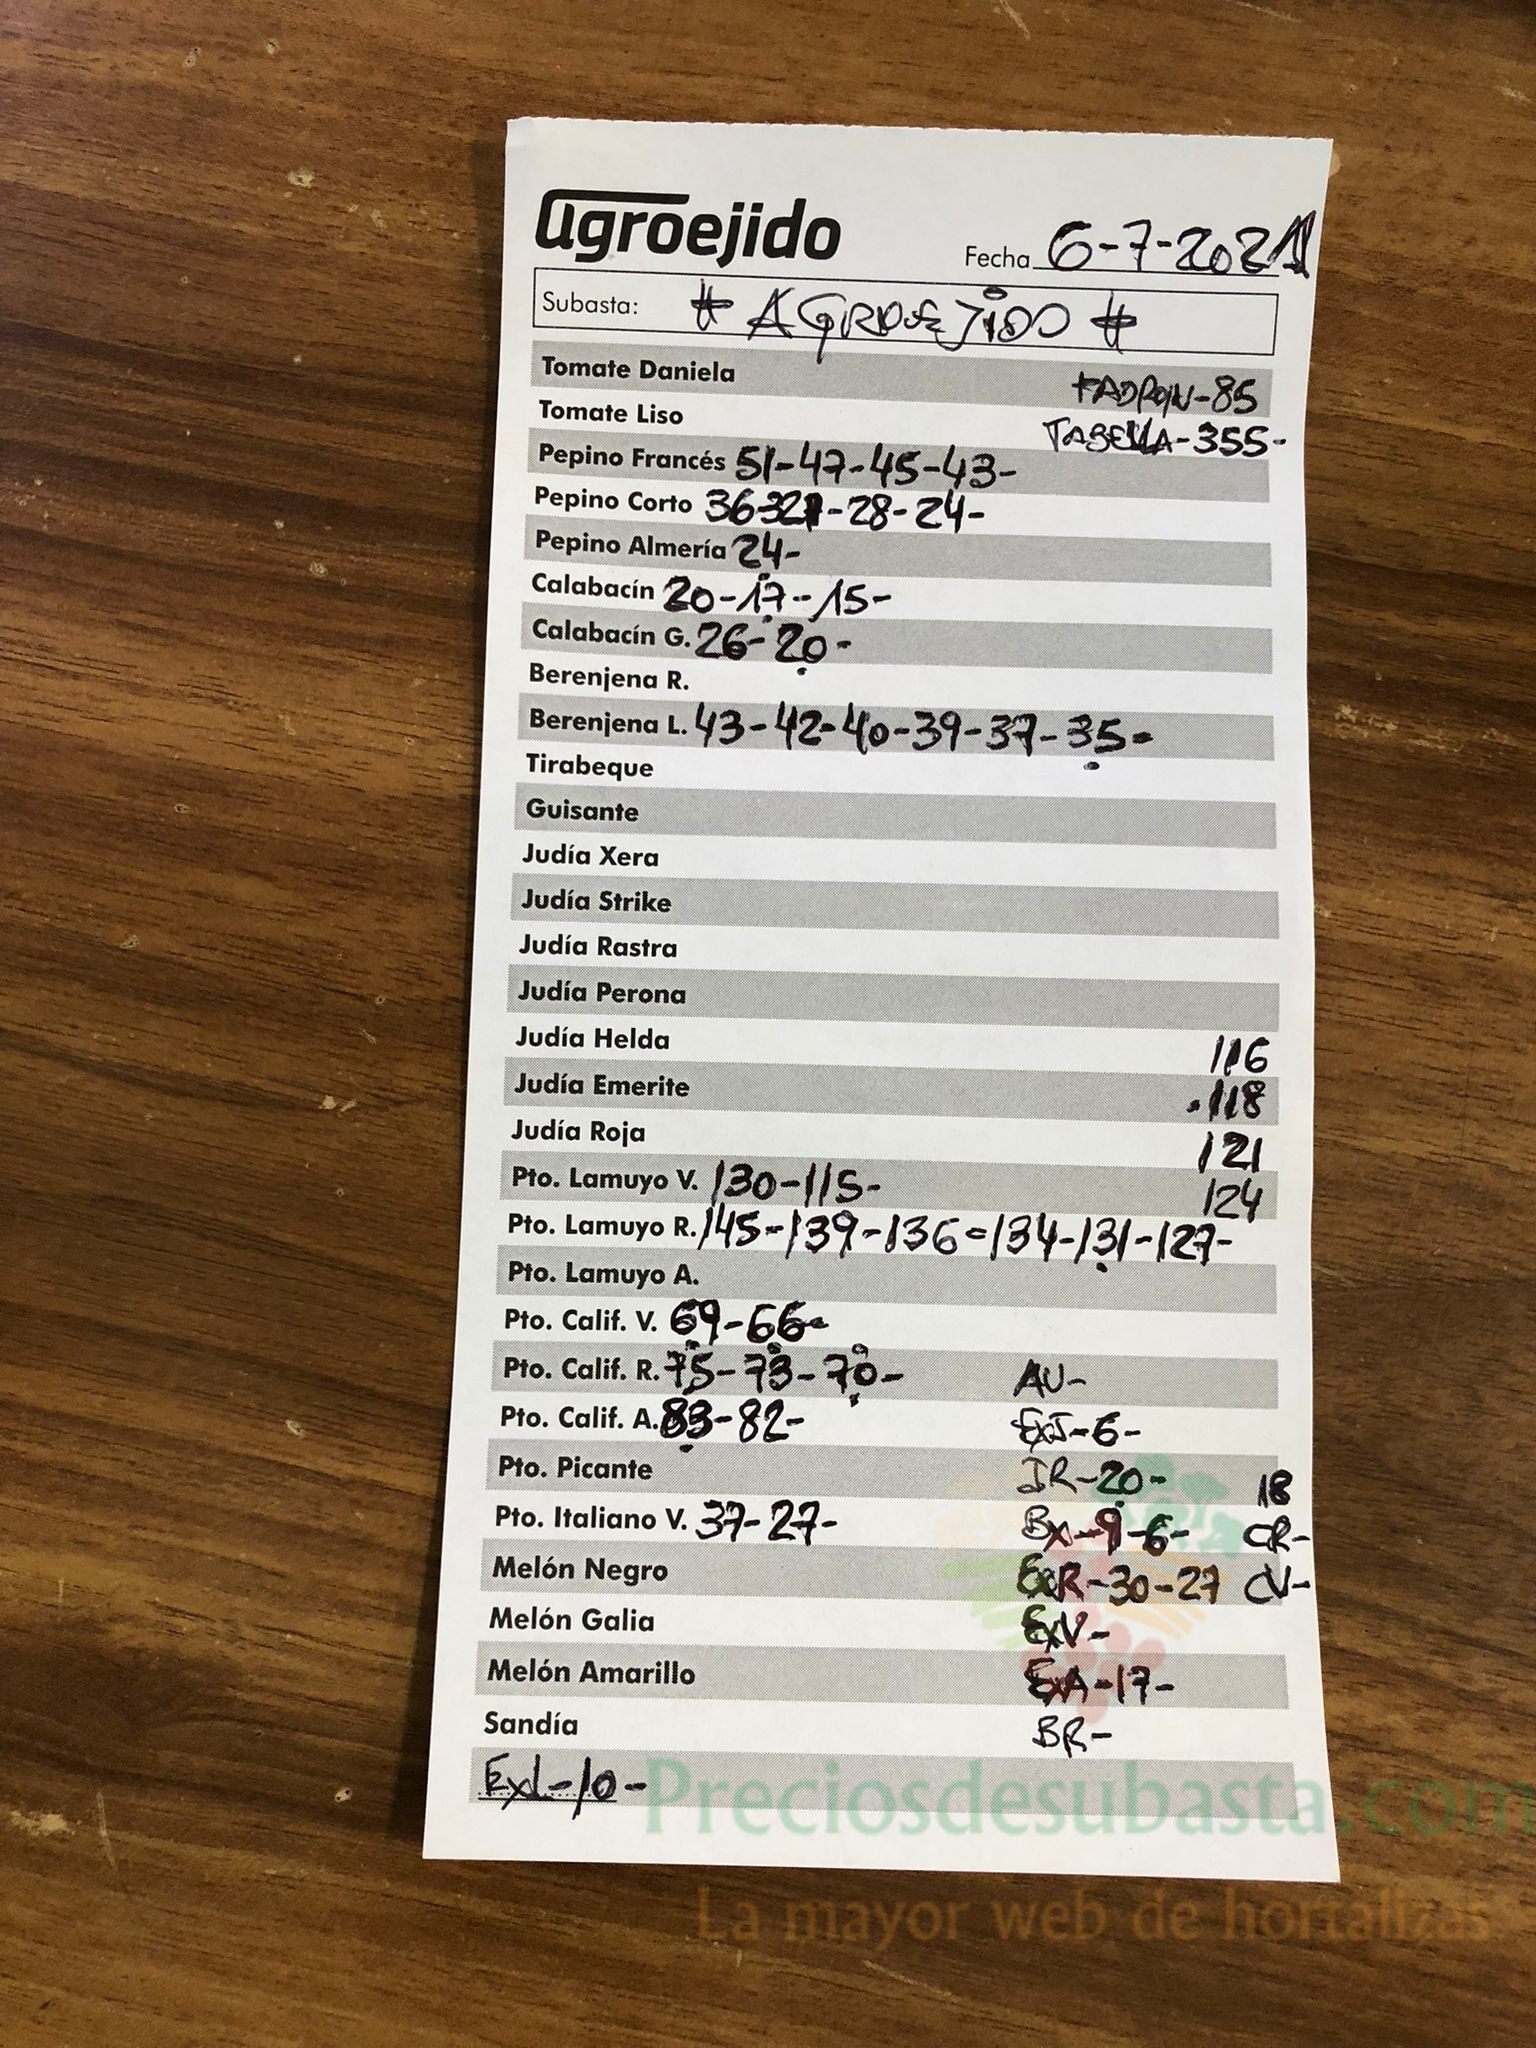 agroejido
Fecha 6-7-2021
Subasta: # AGROEJIDO #
Tomate Daniela PADRON-85
Tomate Liso TABELLA-355-
Pepino Francés 51-47-45-43-
Pepino Corto 36-32-28-24-
Pepino Almería 24-
Calabacín 20-17-15-
Calabacín G. 26-20-
Berenjena R.
Berenjena L. 43-42-40-39-37-35-
Tirabeque
Guisante
Judía Xera
Judía Strike
Judía Rastra
Judía Perona
Judía Helda 116
Judía Emerite 118
Judía Roja 121
Pto. Lamuyo V. 130-115- 124
Pto. Lamuyo R. 145-139-136-134-131-127-
Pto. Lamuyo A.
Pto. Calif. V. 69-66-
Pto. Calif. R. 75-73-70- AU-
Pto. Calif. A. 83-82- EXJ-6-
Pto. Picante JR-20- 18
Pto. Italiano V. 37-27- BX-9-6- CR-
Melón Negro EXR-30-27 CV-
Melón Galia EXV-
Melón Amarillo EXA-17-
Sandía BR-
EXL-10-
Preciosdesubasta.com
La mayor web de hortalizas